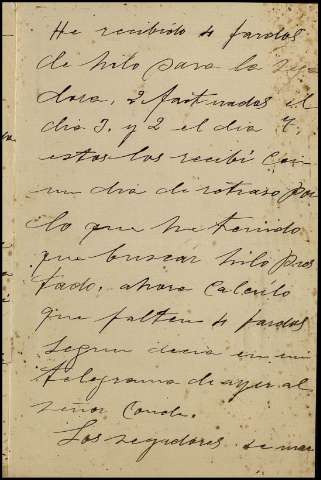 He recibido 4 fardos
de hilo para la sega
dora, 2 facturados el
dia 3, y 2 el dia 7,
estos los recibí con
un dia de retraso por
lo que he tenido
que buscar hilo pres
tado, ahora calculo
que falten 4 fardos
segun decia en mi
telegrama de ayer al
señor Conde.
Los segadores se mar